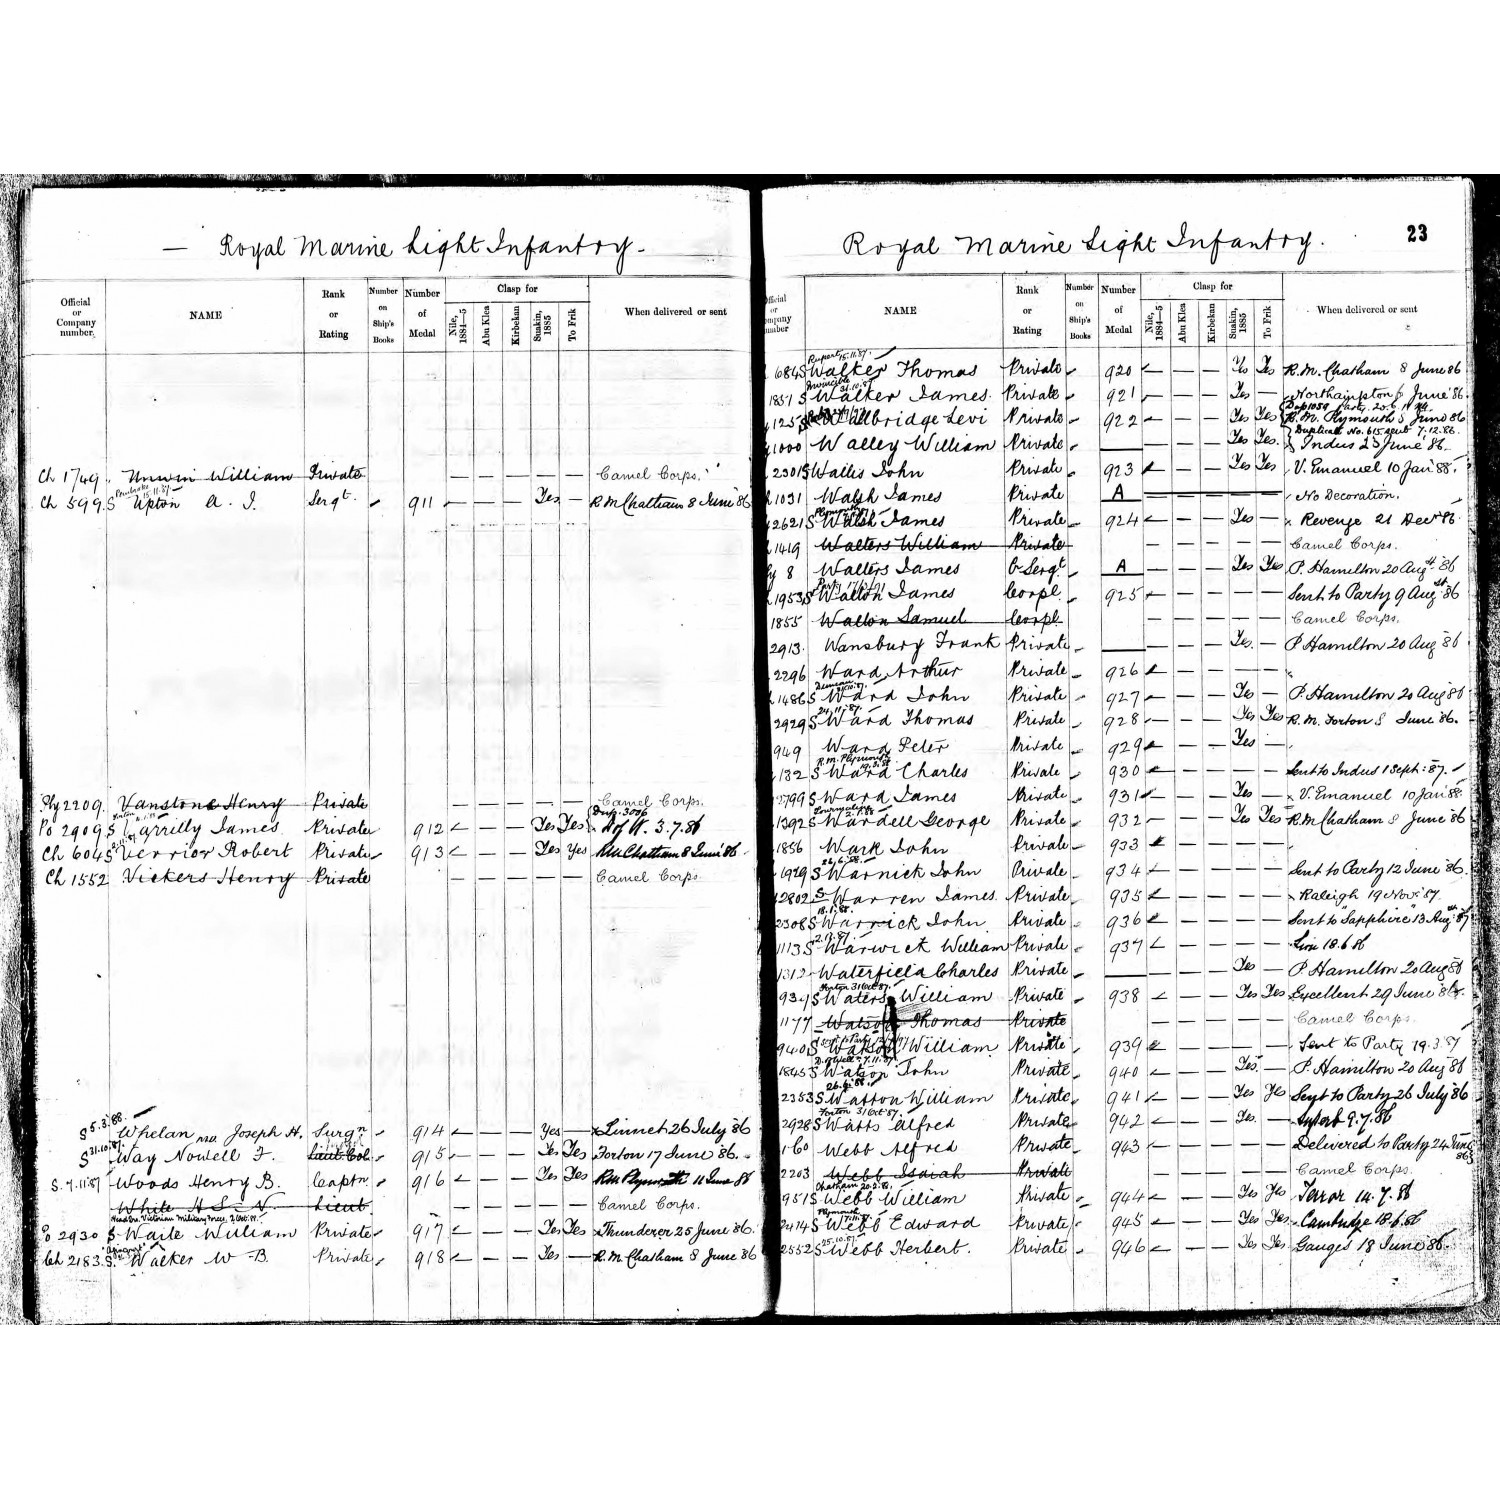 — Royal Marine Light Infantry —
Official or Company number. NAME Rank or Rating Number on Ship's Books Number of Medal Clasp for Nile, 1884—5 Abu Klea Kirbekan Suakin, 1885 To Frik When delivered or sent
Ch 1749. Unwin William Private — — — — — Camel Corps.
Ch 599. S Upton A. J. Sergt. 911 — — — Yes — R M Chatham 8 June '86
Ply 2209. Vanstone Henry Private — — — — — Camel Corps.
Dup. 3006
Po 2909 S Varrilly James Private 912 — — — Yes Yes 3.7.86
Ch 604 S Verrior Robert Private 913 — — — Yes Yes RM Chatham 8 June '86
Ch 1552 Vickers Henry Private — — — — — Camel Corps.
S 5.3.88. Whelan M.D. Joseph H. Surgn 914 — — — Yes — Linnet 26 July '86
S 31.10.87. Way Nowell F. Lieut Col 915 — — — Yes Yes Forton 17 June '86.
S. 7.11.87 Woods Henry B. Captn. 916 — — — Yes Yes RM Plymouth 11 June 86
White H S. N. Lieut. — — — — — Camel Corps.
Po 2930 S Waite William Private 917 — — — Yes Yes Thunderer 25 June '86.
Ch 2183. S. Walker W B. Private 918 — — — Yes — R.M. Chatham 8 June '86
Royal Marine Light Infantry. 23
Official or Company number NAME Rank or Rating Number on Ship's Books Number of Medal Clasp for Nile, 1884—5 Abu Klea Kirbekan Suakin, 1885 To Frik When delivered or sent
Rupert 15.11.87.
684 S Walker Thomas Private 920 — — — Yes Yes R.M. Chatham 8 June 86
Invincible 31.10.87
1851 S Walker James. Private 921 — — — Yes — Northampton June '86.
Dup 1059 Party. 20.6.11
125 Walbridge Levi Private 922 — — — Yes Yes R.M. Plymouth 8 June '86
Duplicate No. 615 sent 7.12.86.
1000 Walley William Private — — — — Yes Yes. Indus 23 June '86.
2301 S Wallis John Private 923 — — — Yes Yes V. Emanuel 10 Jan '88.
1031 Walsh James Private A — — — — — No Decoration.
Plymouth
2621 S Walsh James Private 924 — — — Yes — Revenge 21 Decr '86
1419 Walters William Private — — — — — Camel Corps.
8 Walters James C Sergt. A — — — Yes Yes P. Hamilton 20 Augst '86
1953 S Walton James Corpl. 925 — — — — — Sent to Party 9 Augst '86
1855 Walton Samuel Corpl. — — — — — Camel Corps.
2913. Wansbury Frank Private — — — — Yes. — P Hamilton 20 Aug '86
2296 Ward Arthur Private 926 — — — — —
Duncan
1486 S Ward John Private 927 — — — Yes — P. Hamilton 20 Aug '86
24.11.87.
2929 S Ward Thomas Private 928 — — — Yes Yes R.M. Forton 8 June '86.
949 Ward Peter Private 929 — — — Yes —
R.M. Plymouth
132 S Ward Charles Private 930 — — — — — Sent to Indus 1 Sept: '87.
2799 S Ward James Private 931 — — — Yes — V. Emanuel 10 Jan '88
1392 S Wardell George Private 932 — — — Yes Yes R.M Chatham 8 June '86
1856 Wark John Private 933 — — — — —
26.6.88.
1929 S Warnick John Private 934 — — — — — Sent to Party 12 June '86.
2802 S Warren James. Private 935 — — — — — Raleigh 19 Nov: '87.
18.1.88.
2308 S Warrick John Private 936 — — — — — Sent to "Sapphire" 13 Augst '87
1113 S Warwick William Private 937 — — — — — 18.6.86
1312 Waterfield Charles Private — — — — Yes — P Hamilton 20 Aug '86
Forton 31 Oct '87.
937 S Waters William Private 938 — — — Yes Yes Excellent 29 June '86.
1177 Watson Thomas Private — — — — — Camel Corps.
940 S Watson William Private 939 — — — — — Sent to Party 19.3.87
1845 S Watson John Private 940 — — — Yes. — P. Hamilton 20 Aug 86
26.6.88.
2353 S Watton William Private 941 — — — Yes Yes Sent to Party 26 July '86
Forton 31 Oct '87.
2928 S Watts Alfred Private 942 — — — Yes. — 9.7.86
160 Webb Alfred Private 943 — — — — — Delivered to Party 24 June 86
2203 Webb Isaiah Private — — — — — Camel Corps.
Chatham 20.2.88.
951 S Webb William Private 944 — — — Yes Yes Terror 14.7.86
Plymouth
2414 S Webb Edward Private 945 — — — Yes Yes Cambridge 18.6.86
25.10.87.
2552 S Webb Herbert. Private 946 — — — Yes Yes Ganges 18 June '86.